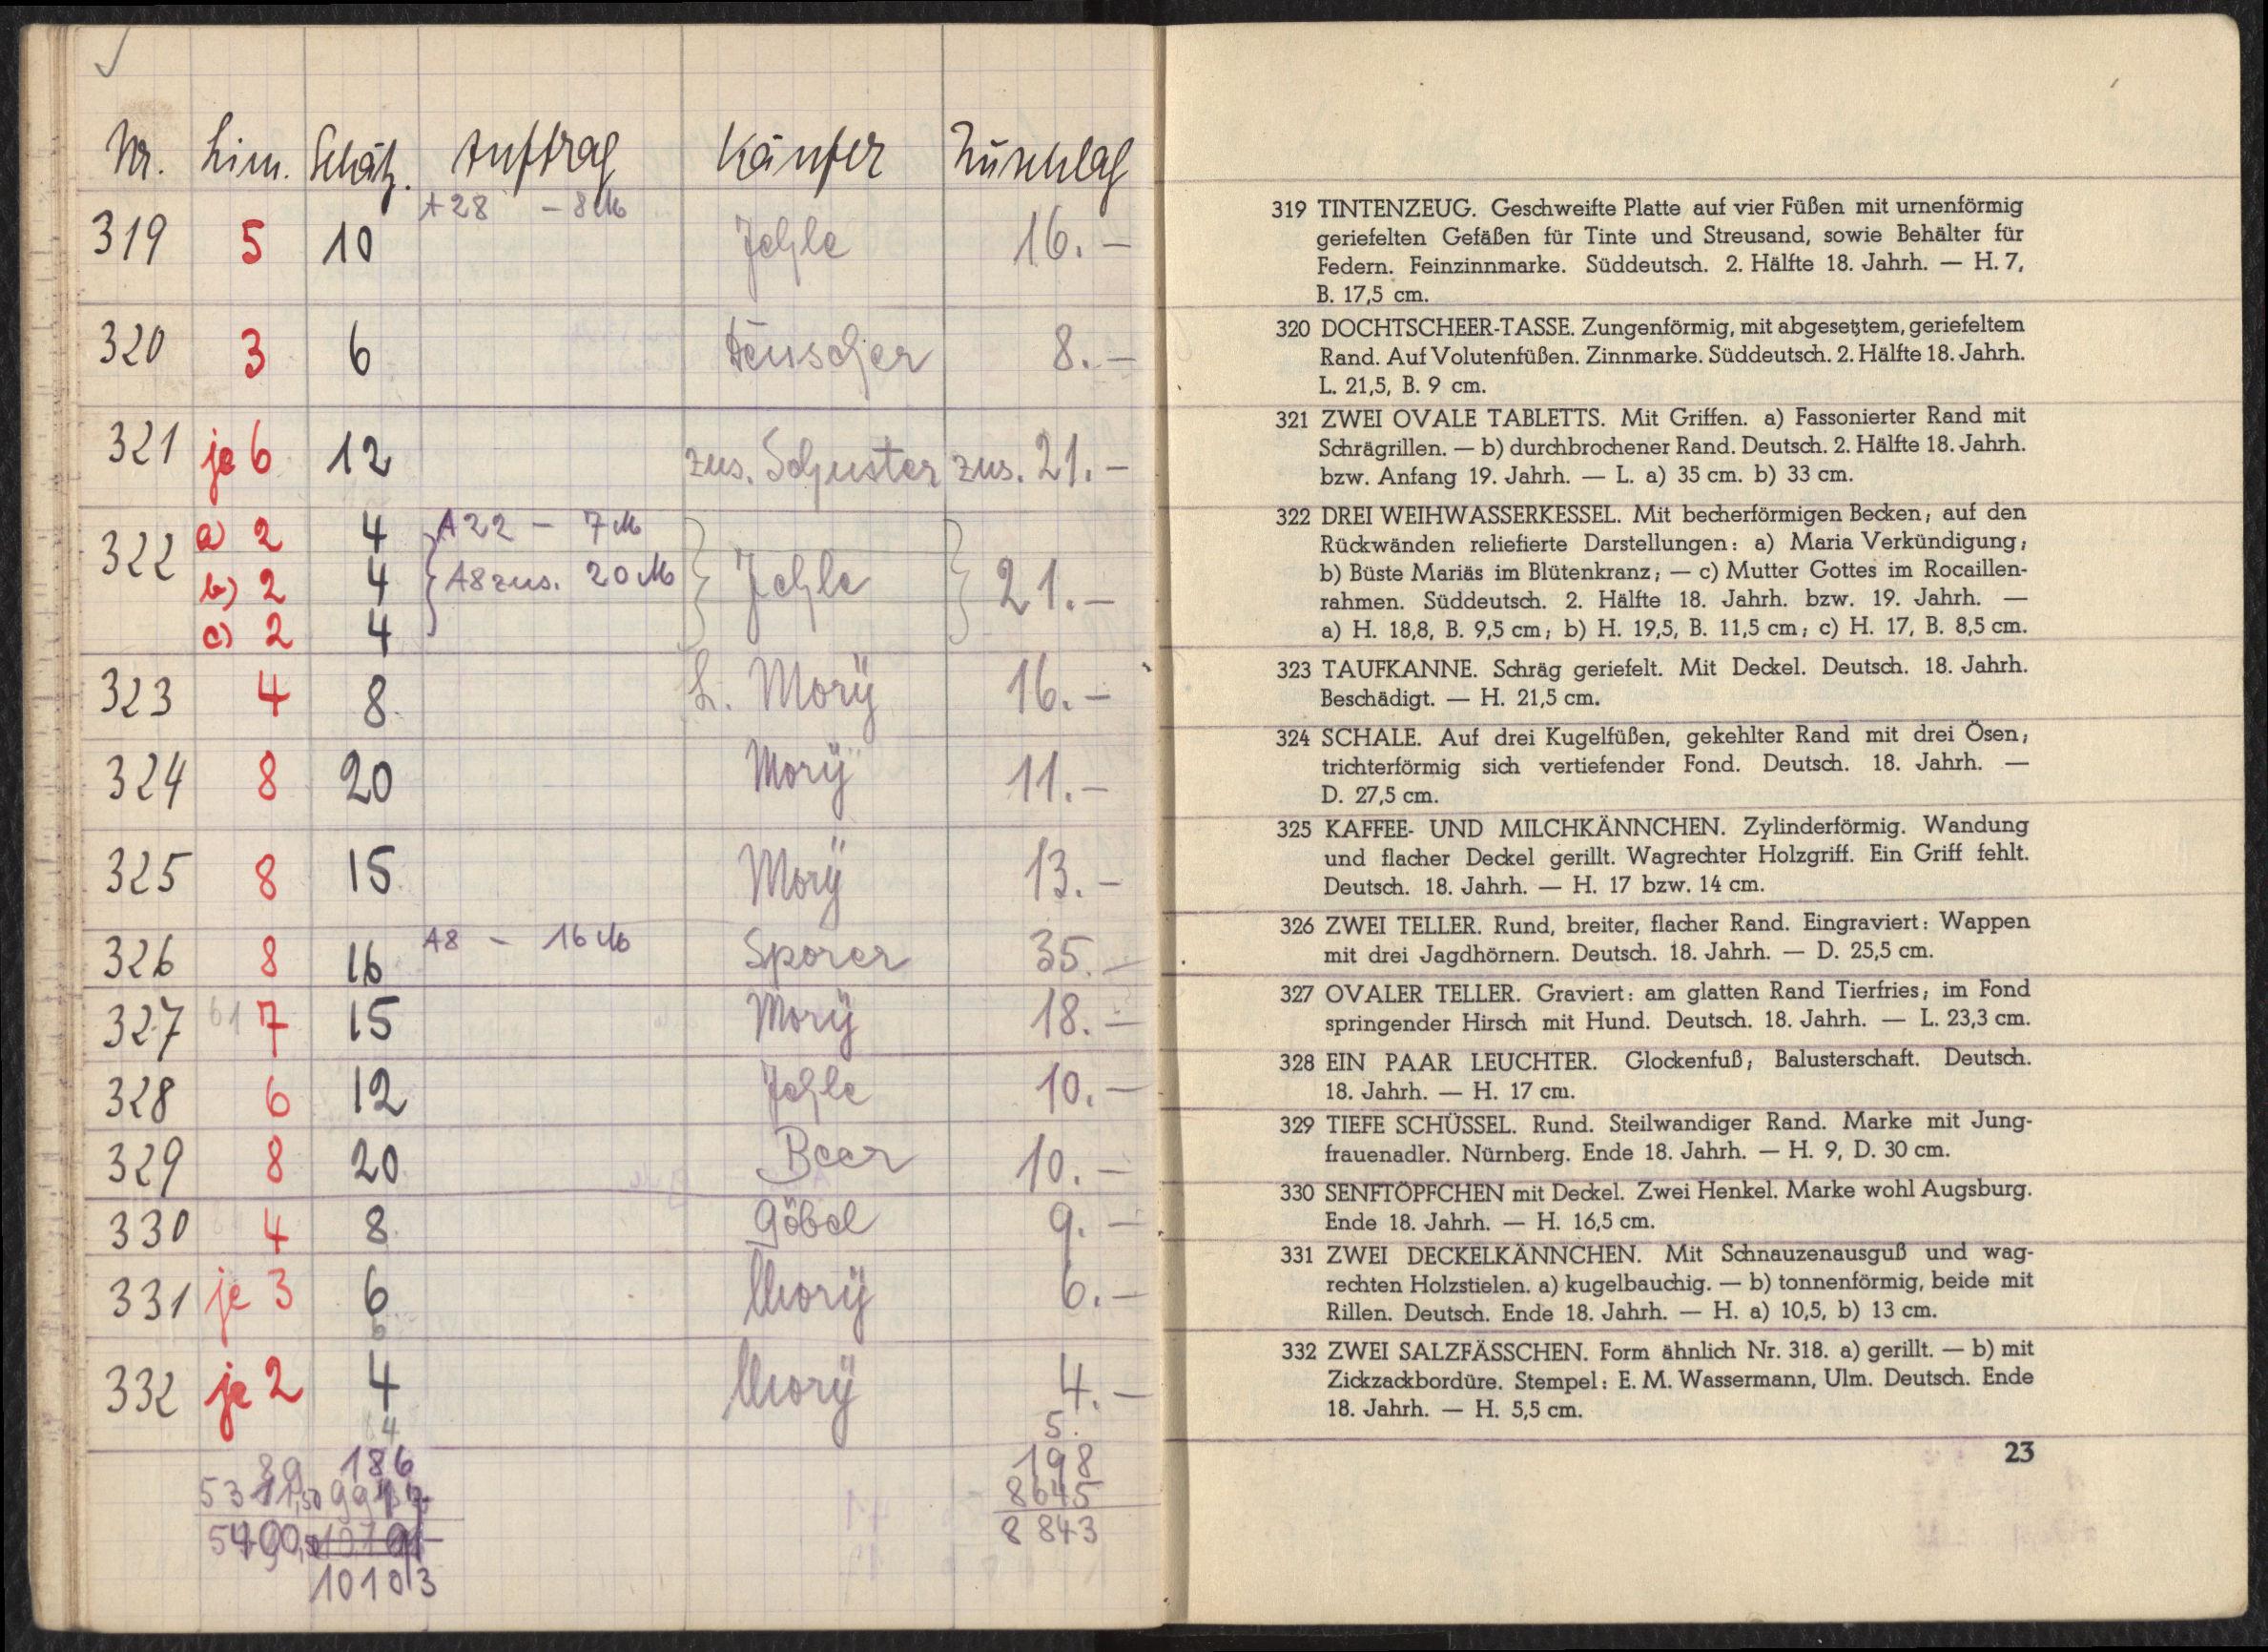 Nr. Lim. Schätz. Auftrag Käufer Zuschlag
A 28 - 8 M
319 5 10 Jehle 16.-
320 3 6 Deuscher 8.-
321 je 6 12 zus. Schuster zus. 21.-
322 a) 2 4 A 22 - 7 M
b) 2 4 A8 zus. 20 M Jehle 21.-
c) 2 4
323 4 8 L. Morÿ 16.-
324 8 20 Morÿ 11.-
325 8 15 Morÿ 13.-
326 8 16 A8 - 16 M Sporer 35.-
327 7 15 Morÿ 18.-
328 6 12 Jehle 10.-
329 8 20 Beer 10.-
330 4 8 Göbel 9.-
331 je 3 6 Morÿ 6.-
6
332 je 2 4 Morÿ 4.-
4 5.
89 186 198
8645
8843
10103
319 TINTENZEUG. Geschweifte Platte auf vier Füßen mit urnenförmig
geriefelten Gefäßen für Tinte und Streusand, sowie Behälter für
Federn. Feinzinnmarke. Süddeutsch. 2. Hälfte 18. Jahrh. — H. 7,
B. 17,5 cm.
320 DOCHTSCHEER-TASSE. Zungenförmig, mit abgesetztem, geriefeltem
Rand. Auf Volutenfüßen. Zinnmarke. Süddeutsch. 2. Hälfte 18. Jahrh.
L. 21,5, B. 9 cm.
321 ZWEI OVALE TABLETTS. Mit Griffen. a) Fassonierter Rand mit
Schrägrillen. — b) durchbrochener Rand. Deutsch. 2. Hälfte 18. Jahrh.
bzw. Anfang 19. Jahrh. — L. a) 35 cm. b) 33 cm.
322 DREI WEIHWASSERKESSEL. Mit becherförmigen Becken; auf den
Rückwänden reliefierte Darstellungen: a) Maria Verkündigung;
b) Büste Mariäs im Blütenkranz; — c) Mutter Gottes im Rocaillen-
rahmen. Süddeutsch. 2. Hälfte 18. Jahrh. bzw. 19. Jahrh. —
a) H. 18,8, B. 9,5 cm; b) H. 19,5, B. 11,5 cm; c) H. 17, B. 8,5 cm.
323 TAUFKANNE. Schräg geriefelt. Mit Deckel. Deutsch. 18. Jahrh.
Beschädigt. — H. 21,5 cm.
324 SCHALE. Auf drei Kugelfüßen, gekehlter Rand mit drei Ösen;
trichterförmig sich vertiefender Fond. Deutsch. 18. Jahrh. —
D. 27,5 cm.
325 KAFFEE- UND MILCHKÄNNCHEN. Zylinderförmig. Wandung
und flacher Deckel gerillt. Wagrechter Holzgriff. Ein Griff fehlt.
Deutsch. 18. Jahrh. — H. 17 bzw. 14 cm.
326 ZWEI TELLER. Rund, breiter, flacher Rand. Eingraviert: Wappen
mit drei Jagdhörnern. Deutsch. 18. Jahrh. — D. 25,5 cm.
327 OVALER TELLER. Graviert: am glatten Rand Tierfries; im Fond
springender Hirsch mit Hund. Deutsch. 18. Jahrh. — L. 23,3 cm.
328 EIN PAAR LEUCHTER. Glockenfuß; Balusterschaft. Deutsch.
18. Jahrh. — H. 17 cm.
329 TIEFE SCHÜSSEL. Rund. Steilwandiger Rand. Marke mit Jung-
frauenadler. Nürnberg. Ende 18. Jahrh. — H. 9, D. 30 cm.
330 SENFTÖPFCHEN mit Deckel. Zwei Henkel. Marke wohl Augsburg.
Ende 18. Jahrh. — H. 16,5 cm.
331 ZWEI DECKELKÄNNCHEN. Mit Schnauzenausguß und wag-
rechten Holzstielen. a) kugelbauchig. — b) tonnenförmig, beide mit
Rillen. Deutsch. Ende 18. Jahrh. — H. a) 10,5, b) 13 cm.
332 ZWEI SALZFÄSSCHEN. Form ähnlich Nr. 318. a) gerillt. — b) mit
Zickzackbordüre. Stempel: E. M. Wassermann, Ulm. Deutsch. Ende
18. Jahrh. — H. 5,5 cm.
23